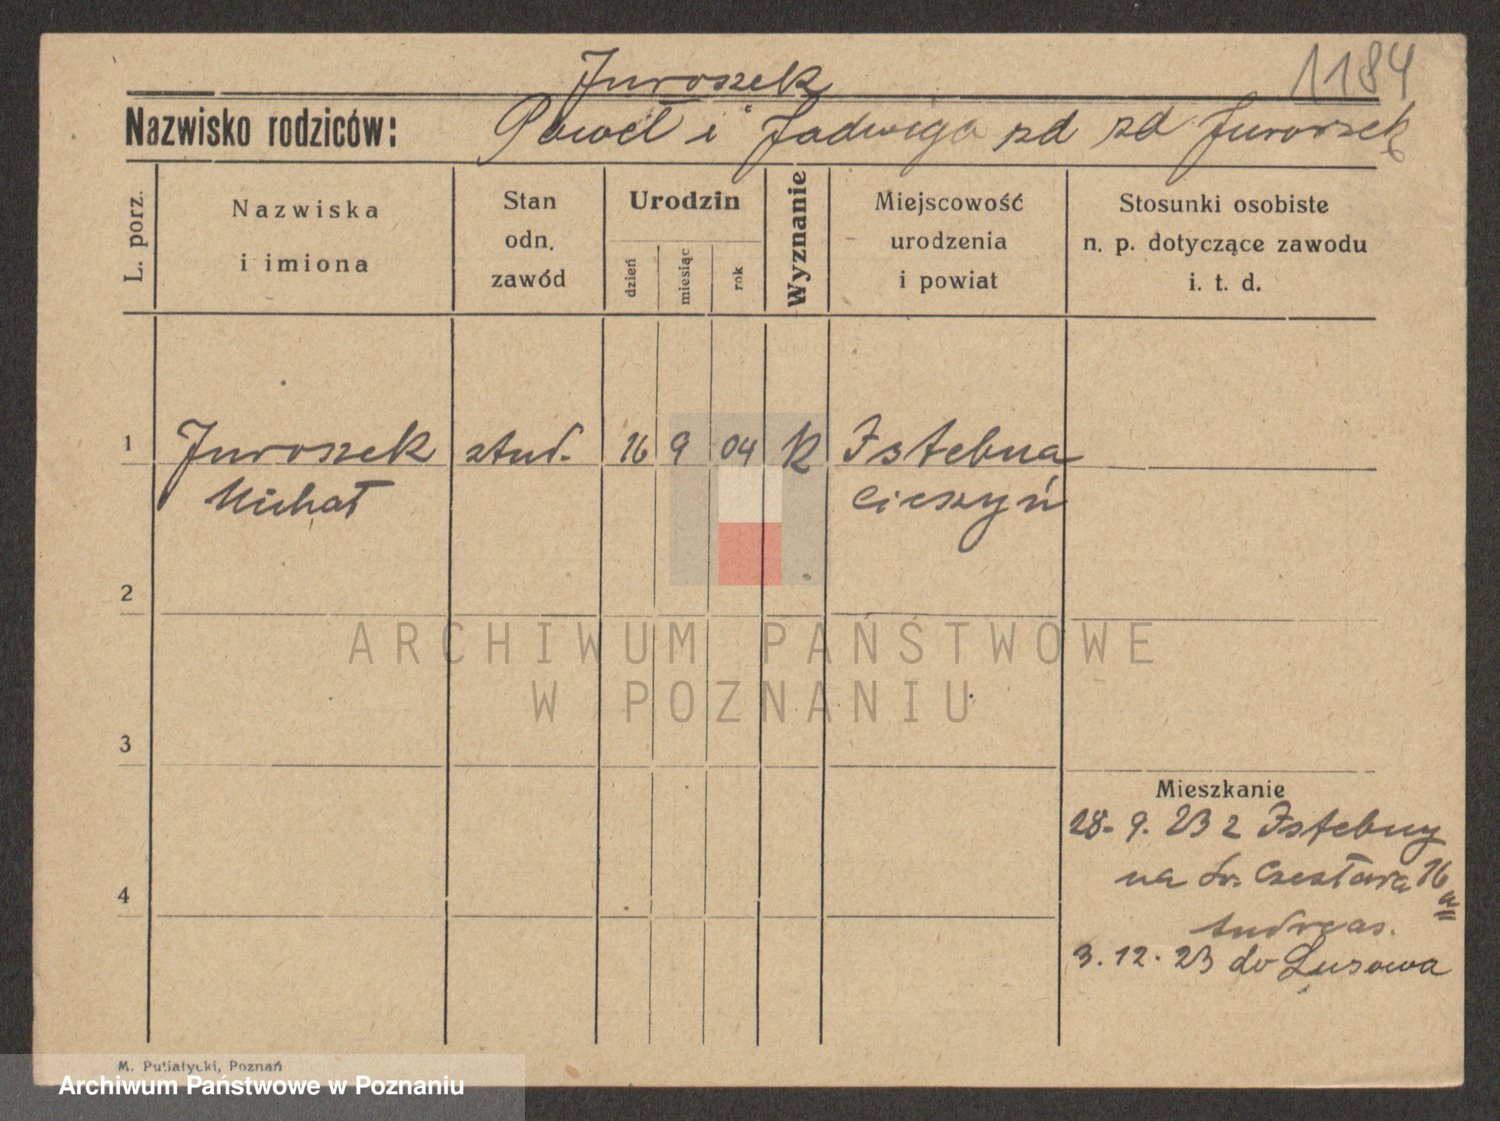 1184
Juroszek
Nazwisko rodziców: Paweł i Jadwiga zd zd Juroszek
L. porz.
Nazwiska
i imiona
Stan
odn.
zawód
Urodzin
dzień
miesiąc
rok
Wyznanie
Miejscowość
urodzenia
i powiat
Stosunki osobiste
n. p. dotyczące zawodu
i. t. d.
1 Juroszek stud. 16 9 04 K Istebna
Michał Cieszyń
2
ARCHIWUM PAŃSTWOWE
W POZNANIU
3
Mieszkanie
28. 9. 23 z Istebny
na Św. Czesława 16
a
Andreas.
3. 12. 23 do Lusowa
4
M. Putiatycki, Poznań
Archiwum Państwowe w Poznaniu